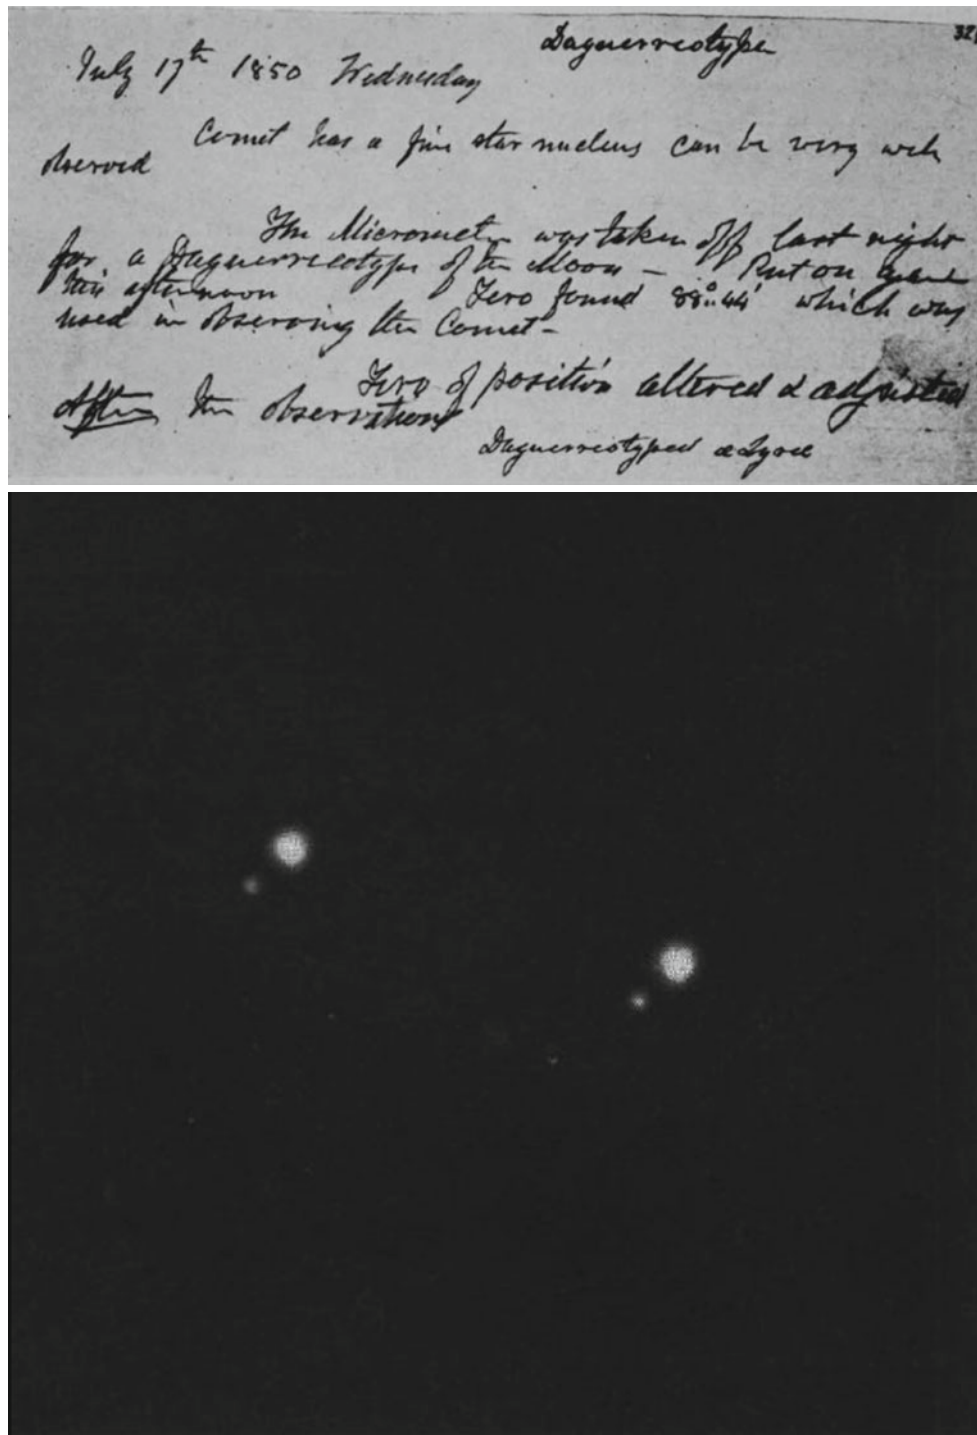 Daguerreotype 32
July 17th 1850 Wednesday
Comet has a fine star nucleus can be very well
observed
The Micrometer was taken off last night
for a Daguerreotype of the Moon – Put on again
this afternoon Zero found 88°..44' which was
used in observing the Comet –
Zero of position altered & adjusted
After the observations
Daguerreotyped α Lyrae